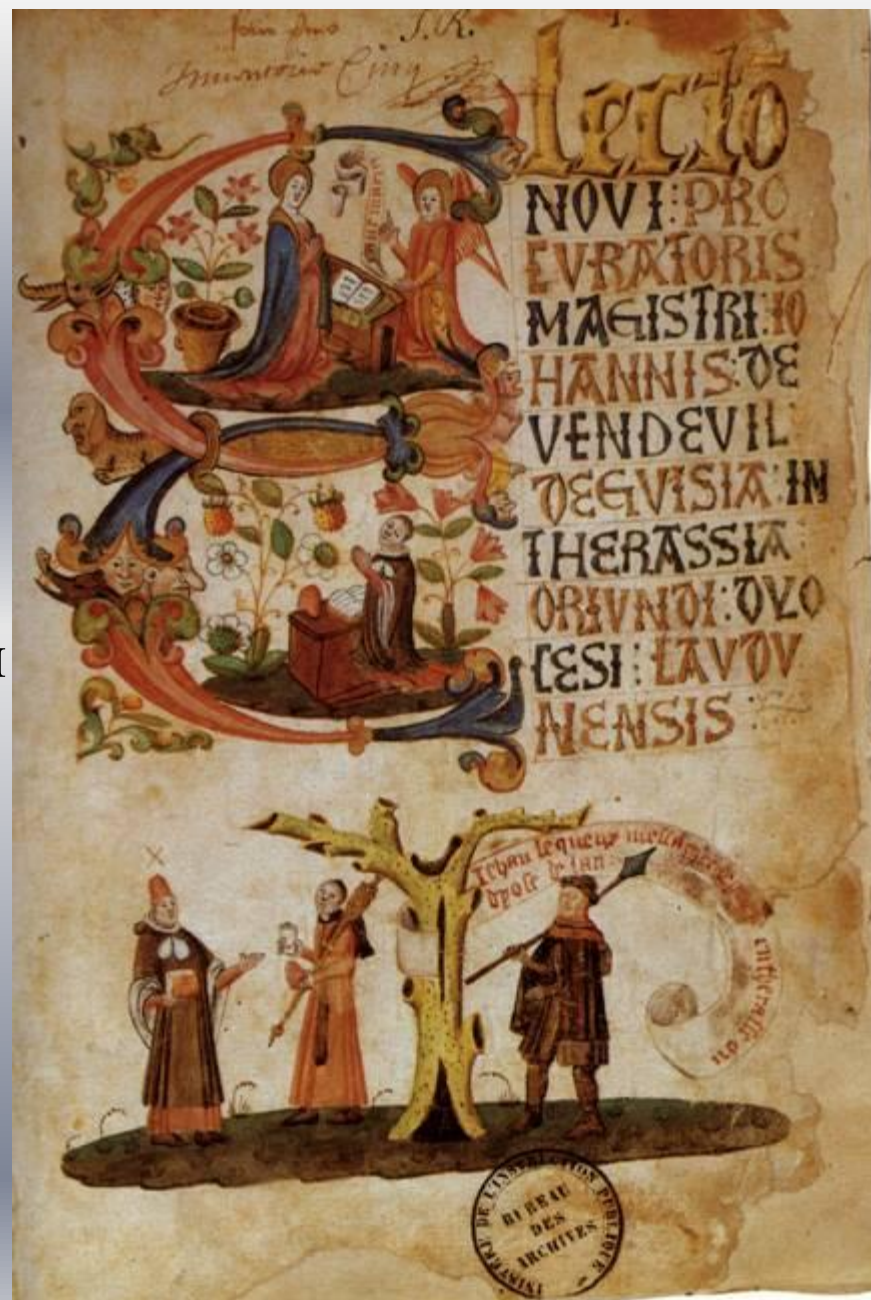 J.R.
Inventorié Cinq
Electō
NOVI : PRO
CVRATORIS
MAGISTRI : IO
HANNIS : DE
VENDEVIL
DEGVISIA : IN
THERASSIA
ORIVNDI : DYO
CESI : LAVDV
NENSIS :
Jehan lequeux
de lan
MINISTÈRE DE L'INSTRUCTION PUBLIQUE
BUREAU
DES
ARCHIVES